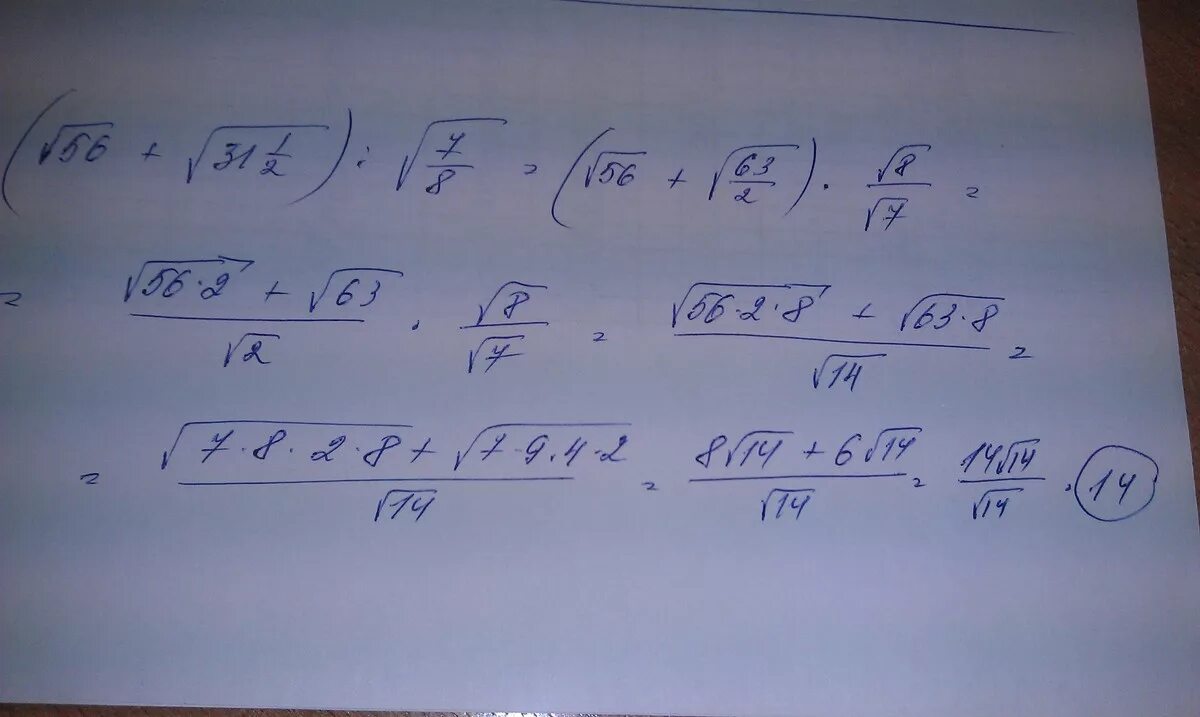 (√56 + √(31 1/2)) : √(7/8) = (√56 + √(63/2)) · √8/√7 =
= (√(56·2) + √63)/√2 · √8/√7 = (√(56·2·8) + √(63·8))/√14 =
= (√(7·8·2·8) + √(7·9·4·2))/√14 = (8√14 + 6√14)/√14 = 14√14/√14 = 14